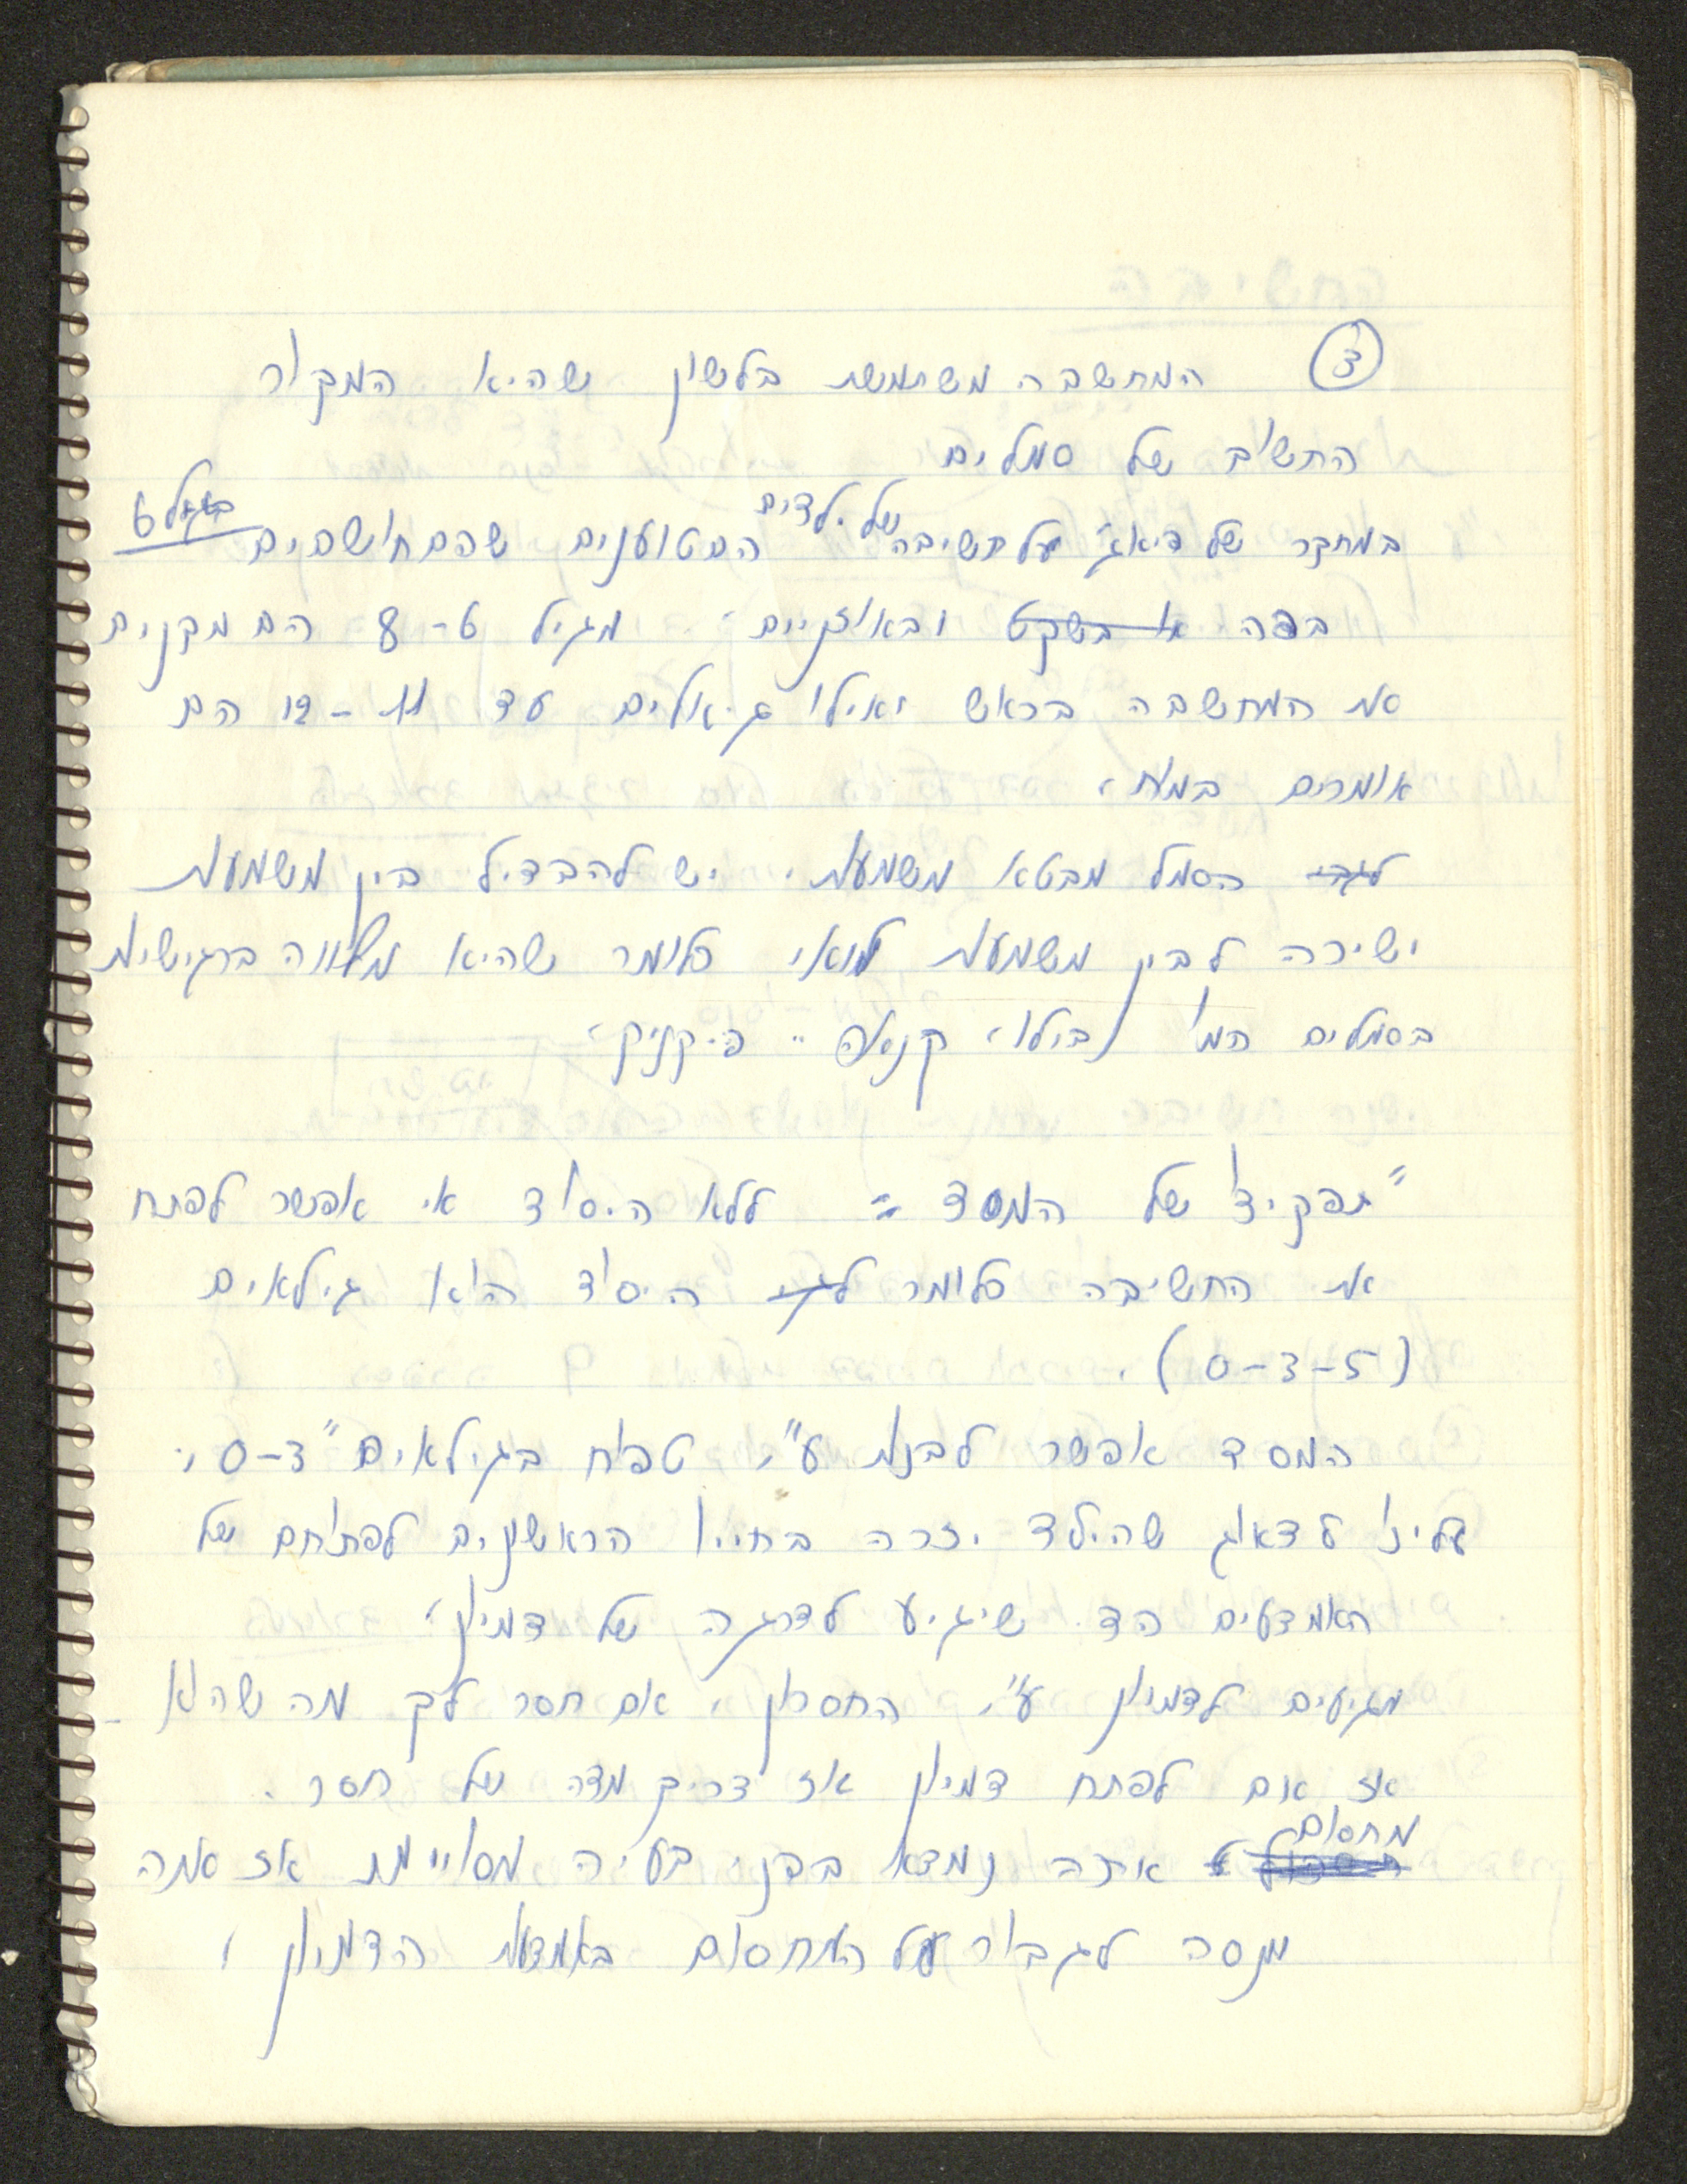 ③ המחשבה משתמשת בלשון שהיא המקור
החשוב של סמלים
במחקר של פיאג' על חשיבה של ילדים הם טוענים שהם חושבים בגיל 6
בפה או בשקט ובאוזניים. מגיל 6-8 הם מקנים
את המחשבה בראש ואילו גיאולים עד 11-12 הם
אומרים במוח.
לגבי הסמל מבטא משמעות. יש להבדיל בין משמעות
ישירה לבין משמעות לואי כלומר שהיא מלווה ברגישות
בסמלים כמו בילוי, פיקניק.
"תפקיד של המסד = ללא היסוד אי אפשר לפתח
את החשיבה כלומר לגבי היסוד הוא גילאים
(0-3-5).
המסד אפשר לבנות ע"י טפוח בגילאים 0-3.
עלינו לדאוג שהילד יזכה בחייו הראשונים לפתוחם של
האמצעים הד. שיגיע לדרגה של דמיון.
מגיעים לדמיון ע"י החסרון, אם חסר לך מה שהוא -
אז אם לפתח דמיון אז צריך מדה של חסר.
מחסום
אתה נמצא בפני בעיה מסויימת אז אתה
מנסה לגבור על המחסום באמצעות הדמיון.